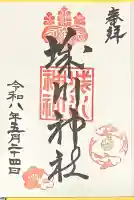 奉拝
川神社
令和八年五月二十四日